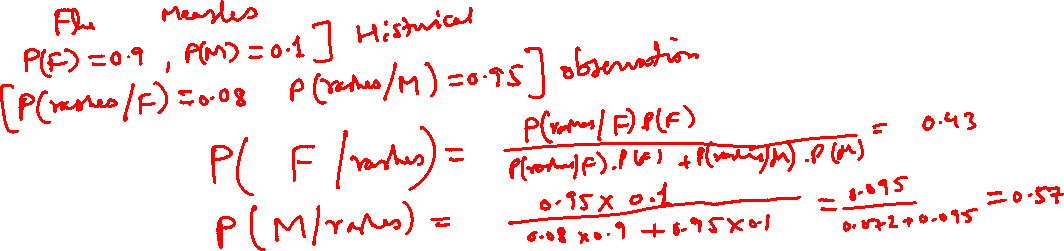 Flu Measles
P(F) = 0.9 , P(M) = 0.1 ] Historical
[ P(rashes/F) = 0.08 P(rashes/M) = 0.95 ] observation
P( F / rashes) = P(rashes/F) P(F) / P(rashes/F) . P(F) + P(rashes/M) . P(M) = 0.43
P(M/rashes) = 0.95 x 0.1 / 0.08 x 0.9 + 0.95 x 0.1 = 0.095 / 0.072 + 0.095 = 0.57